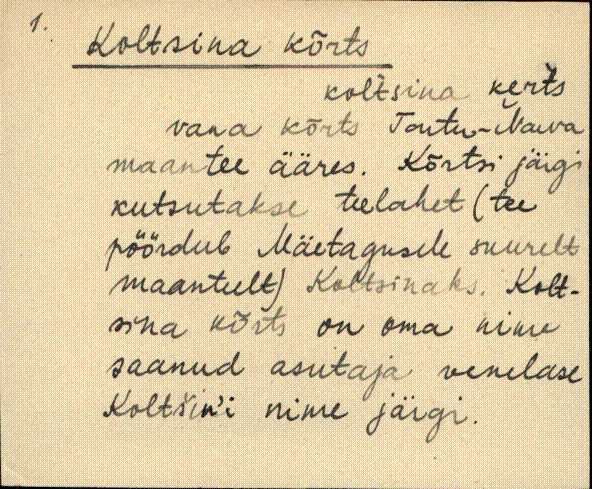 1.
Koltsina kõrts
koltsina kerts
vana kõrts Tartu-Narva
maantee ääres. Kõrtsi järgi
kutsutakse teelahet (tee
pöördub Mäetagusele suurelt
maanteelt) Koltsinaks. Kolt-
sina kõrts on oma nime
saanud asutaja venelase
Koltšin'i nime järgi.